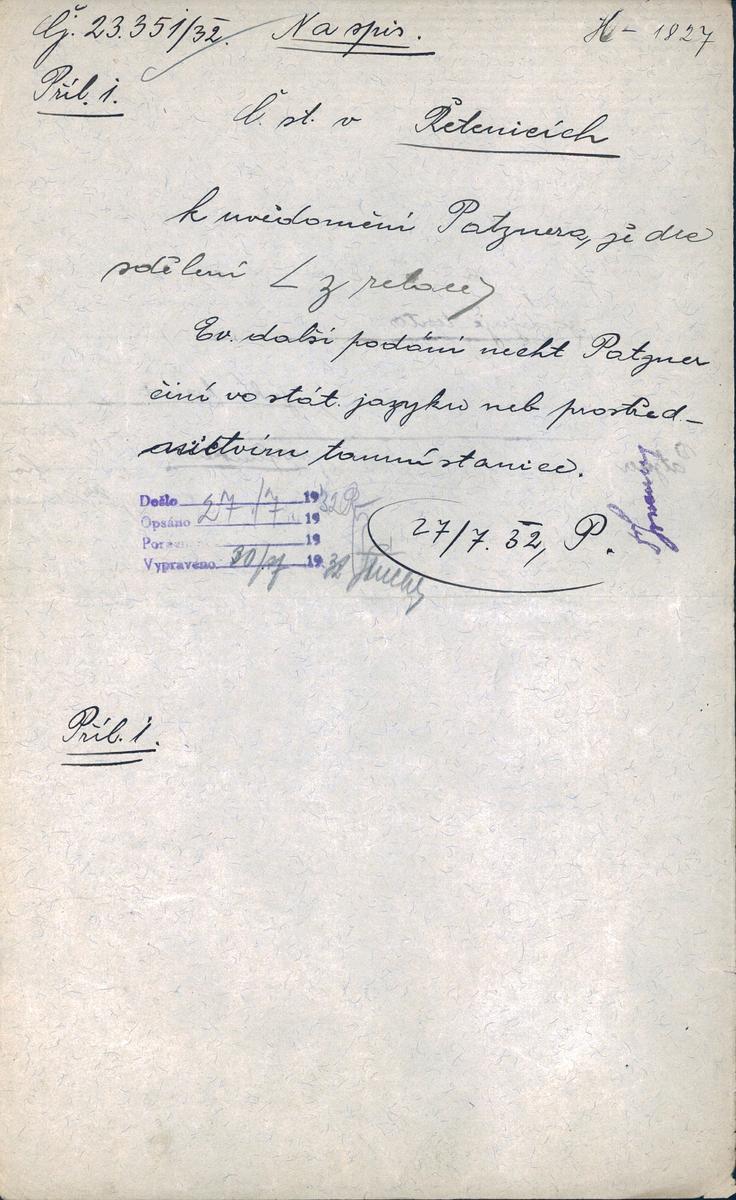 Čj. 23.351/32. Na spis. H - 1827
Příl. 1.
Č. st. v Řetenicích
k uvědomění Patznera, že dle
sdělení ( z relace )
Ev. další podání nechť Patzner
činí ve stát. jazyku neb prostřed-
nictvím tamní stanice.
Došlo 27/7 1932
Opsáno 19
19
Vypraveno 30/7 1932
27/7. 32, P.
Příl. 1.